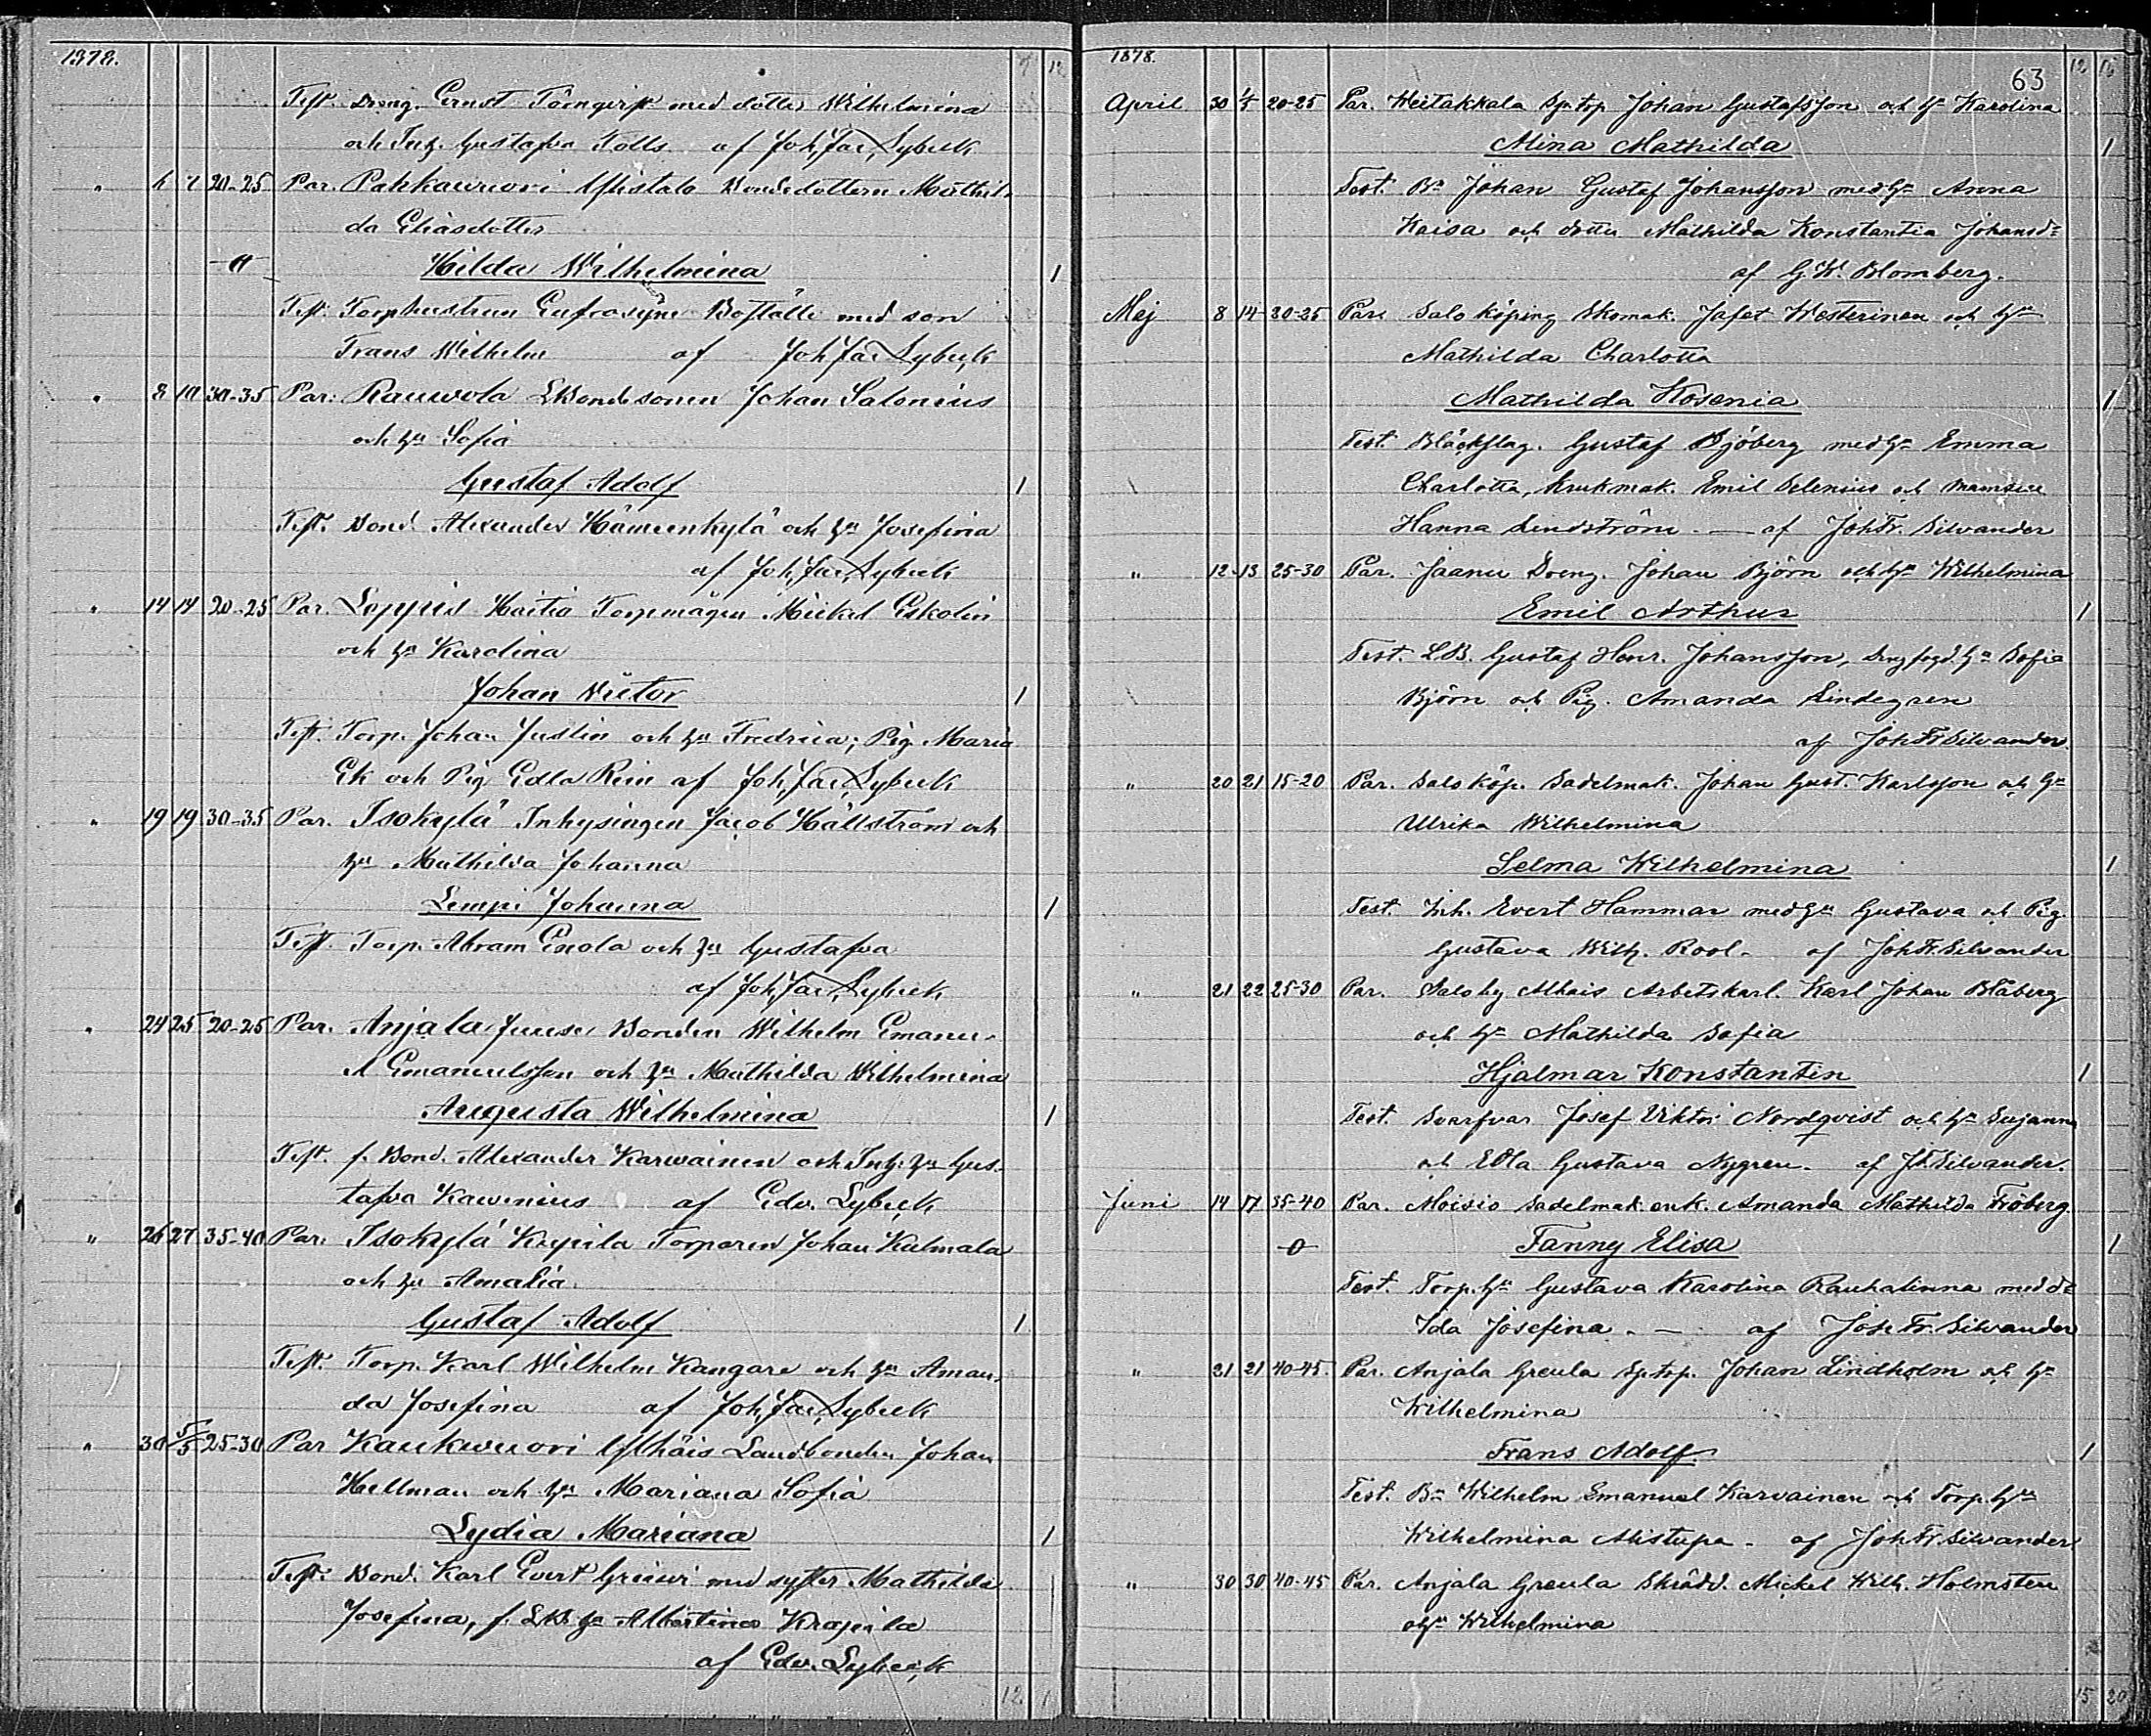 1878.
Test. Dreng. Ernst Törnqvist med dotter Wilhelmina
och Inh. Gustafva Tolls af Joh. Jac. Lybeck
" 6 7 20-25 Par. Pahkavuori Ylistalo Bondedottern Mathil-
da Eliasdotter
Hilda Wilhelmina 1
Test. Torphustrun Eufrosyne Boställe med son
Frans Wilhelm af Joh. Jac. Lybeck
" 8 10 30-35 Par. Rauwola LBondesonen Johan Salonius
och hu Sofia
Gustaf Adolf 1
Test. Bond. Alexander Hämeenkylä och hu Josefina
af Joh. Jac. Lybeck
" 14 14 20-25 Par. Haitio Torpmågen Mickel Eskolin
och hu Karolina
Johan Victor 1
Test. Torp. Johan Juslin och hu Fredrica; Pig. Maria
Ek och Pig Edla Rein af Joh. Jac. Lybeck
" 19 19 30-35 Par. Isokylä Inhysingen Jacob Hällström och
hu Mathilda Johanna
Lempi Johanna 1
Test. Torp. Abram Enola och hu Gustafva
af Joh. Jac. Lybeck
" 24 25 20-25 Par. Anjala Juuse Bonden Wilhelm Emanu-
el Emanuelsson och hu Mathilda Wilhelmina
Augusta Wilhelmina 1
Test. f. Bond. Alexander Karwainen och Inh. hu Gus-
tafva Kawenius af Edv. Lybeck
" 26 27 35-40 Par. Isokylä Krypila Torparen Johan Kulmala
och hu Amalia
Gustaf Adolf 1
Test. Torp. Karl Wilhelm Kangare och hu Aman-
da Josefina af Joh. Jac. Lybeck
" 30 5/5 25-30 Par Kaukwuori Ylhäis Landbonden Johan
Hellman och hu Mariana Sofia
Lydia Mariana 1
Test. Bond. Karl Evert med syster Mathilda
Josefina, f. LB. hu Albertina Krapila
af Edv. Lybeck
12 1
1878. 63
April 30 1/5 20-25 Par. Heitakkala Sp. torp Johan Gustafsson och hu Karolina
Mina Mathilda 1
Test. Bn Johan Gustaf Johansson med hu Anna
Kaisa och dotter Mathilda Konstantia Johansd=
af G. W. Blomberg.
Maj 8 14 20-25 Par. Salo köping Skomak. Jafet Westerinen och hu
Mathilda Charlotta
Mathilda Hosenia 1
Test. Bläckslag. Gustaf Sjöberg med hu Emma
Charlotta, Krukmak. Emil Selenius och mamsell
Hanna Lindström. — af Joh Fr. Silvander
" 12 13 25-30 Par. Jaanu Dreng. Johan Björn och hu Wilhelmina
Emil Arthur 1
Test. LB. Gustaf Henr. Johansson, Drng fogd. hu Sofia
Björn och Pig. Amanda Lindegren
af Joh Fr Silvander
" 20 21 15-20 Par. Salo köp. Sadelmak. Johan Gust. Karlsson och hu
Ulrika Wilhelmina
Selma Wilhelmina 1
Test. Inh. Evert Hammar med hu Gustava och Pig.
Gustava Wilh. Rool. af Joh Fr. Silvander
" 21 22 25-30 Par. Salo by Alhais Arbetskarl. Karl Johan Blåberg
och hu Mathilda Sofia
Hjalmar Konstantin 1
Test. Svarfvar Josef Viktor Nordqvist och hu Susanna
och Edla Gustava Nygren. af J F. Silvander.
Juni 14 17 35-40 Par. Moisio Sadelmak. enk. Amanda Mathilda Fröberg
Fanny Elisa 1
Test. Torp. hu Gustava Karolina Rauhalinna med d=
Ida Josefina. — af Joh Fr. Silvander
" 21 21 40-45. Par. Anjala Greula Sp. torp. Johan Lindholm och hu
Wilhelmina
Frans Adolf. 1
Test. Bn Wilhelm Emanuel Karvainen och Torp. hu
Wilhelmina Alistupa. af Joh Fr. Silvander
" 30 30 40-45 Par. Anjala Greula Skrädd. Mickel Wilh. Holmsten
o hu Wilhelmina
15 20